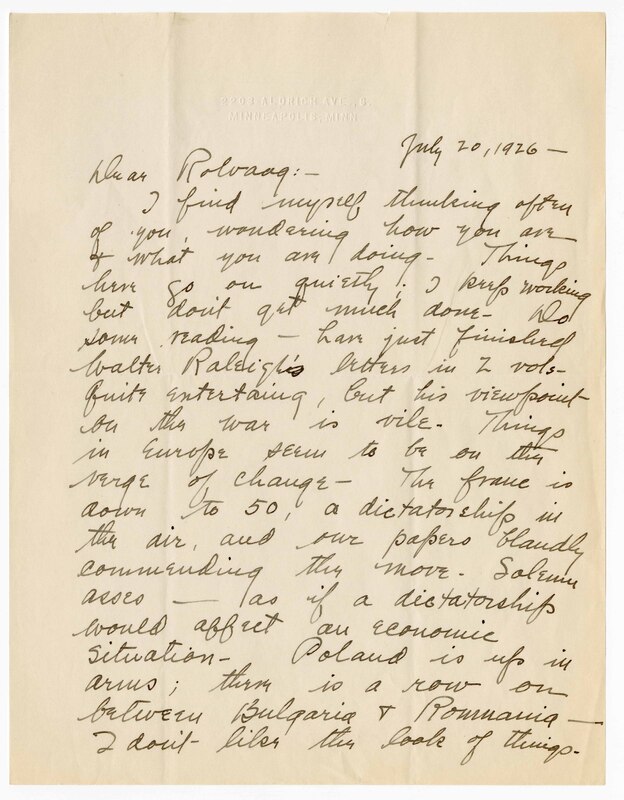 2203 ALDRICH AVE., S.
MINNEAPOLIS, MINN.
July 20, 1926 —
Dear Rolvaag:—
I find myself thinking often
of you, wondering how you are
& what you are doing. Things
here go on quietly; I keep working
but don't get much done. Do
some reading — have just finished
Walter Raleigh's letters in 2 vols.
Quite entertaing, but his viewpoint
on the war is vile. Things
in Europe seem to be on the
verge of change — The franc is
down to 50, a dictatorship in
the air, and our papers blandly
commending the move. Solemn
asses — as if a dictatorship
would affect an economic
situation. Poland is up in
arms; there is a row on
between Bulgaria & Roumania —
I don't like the look of things.